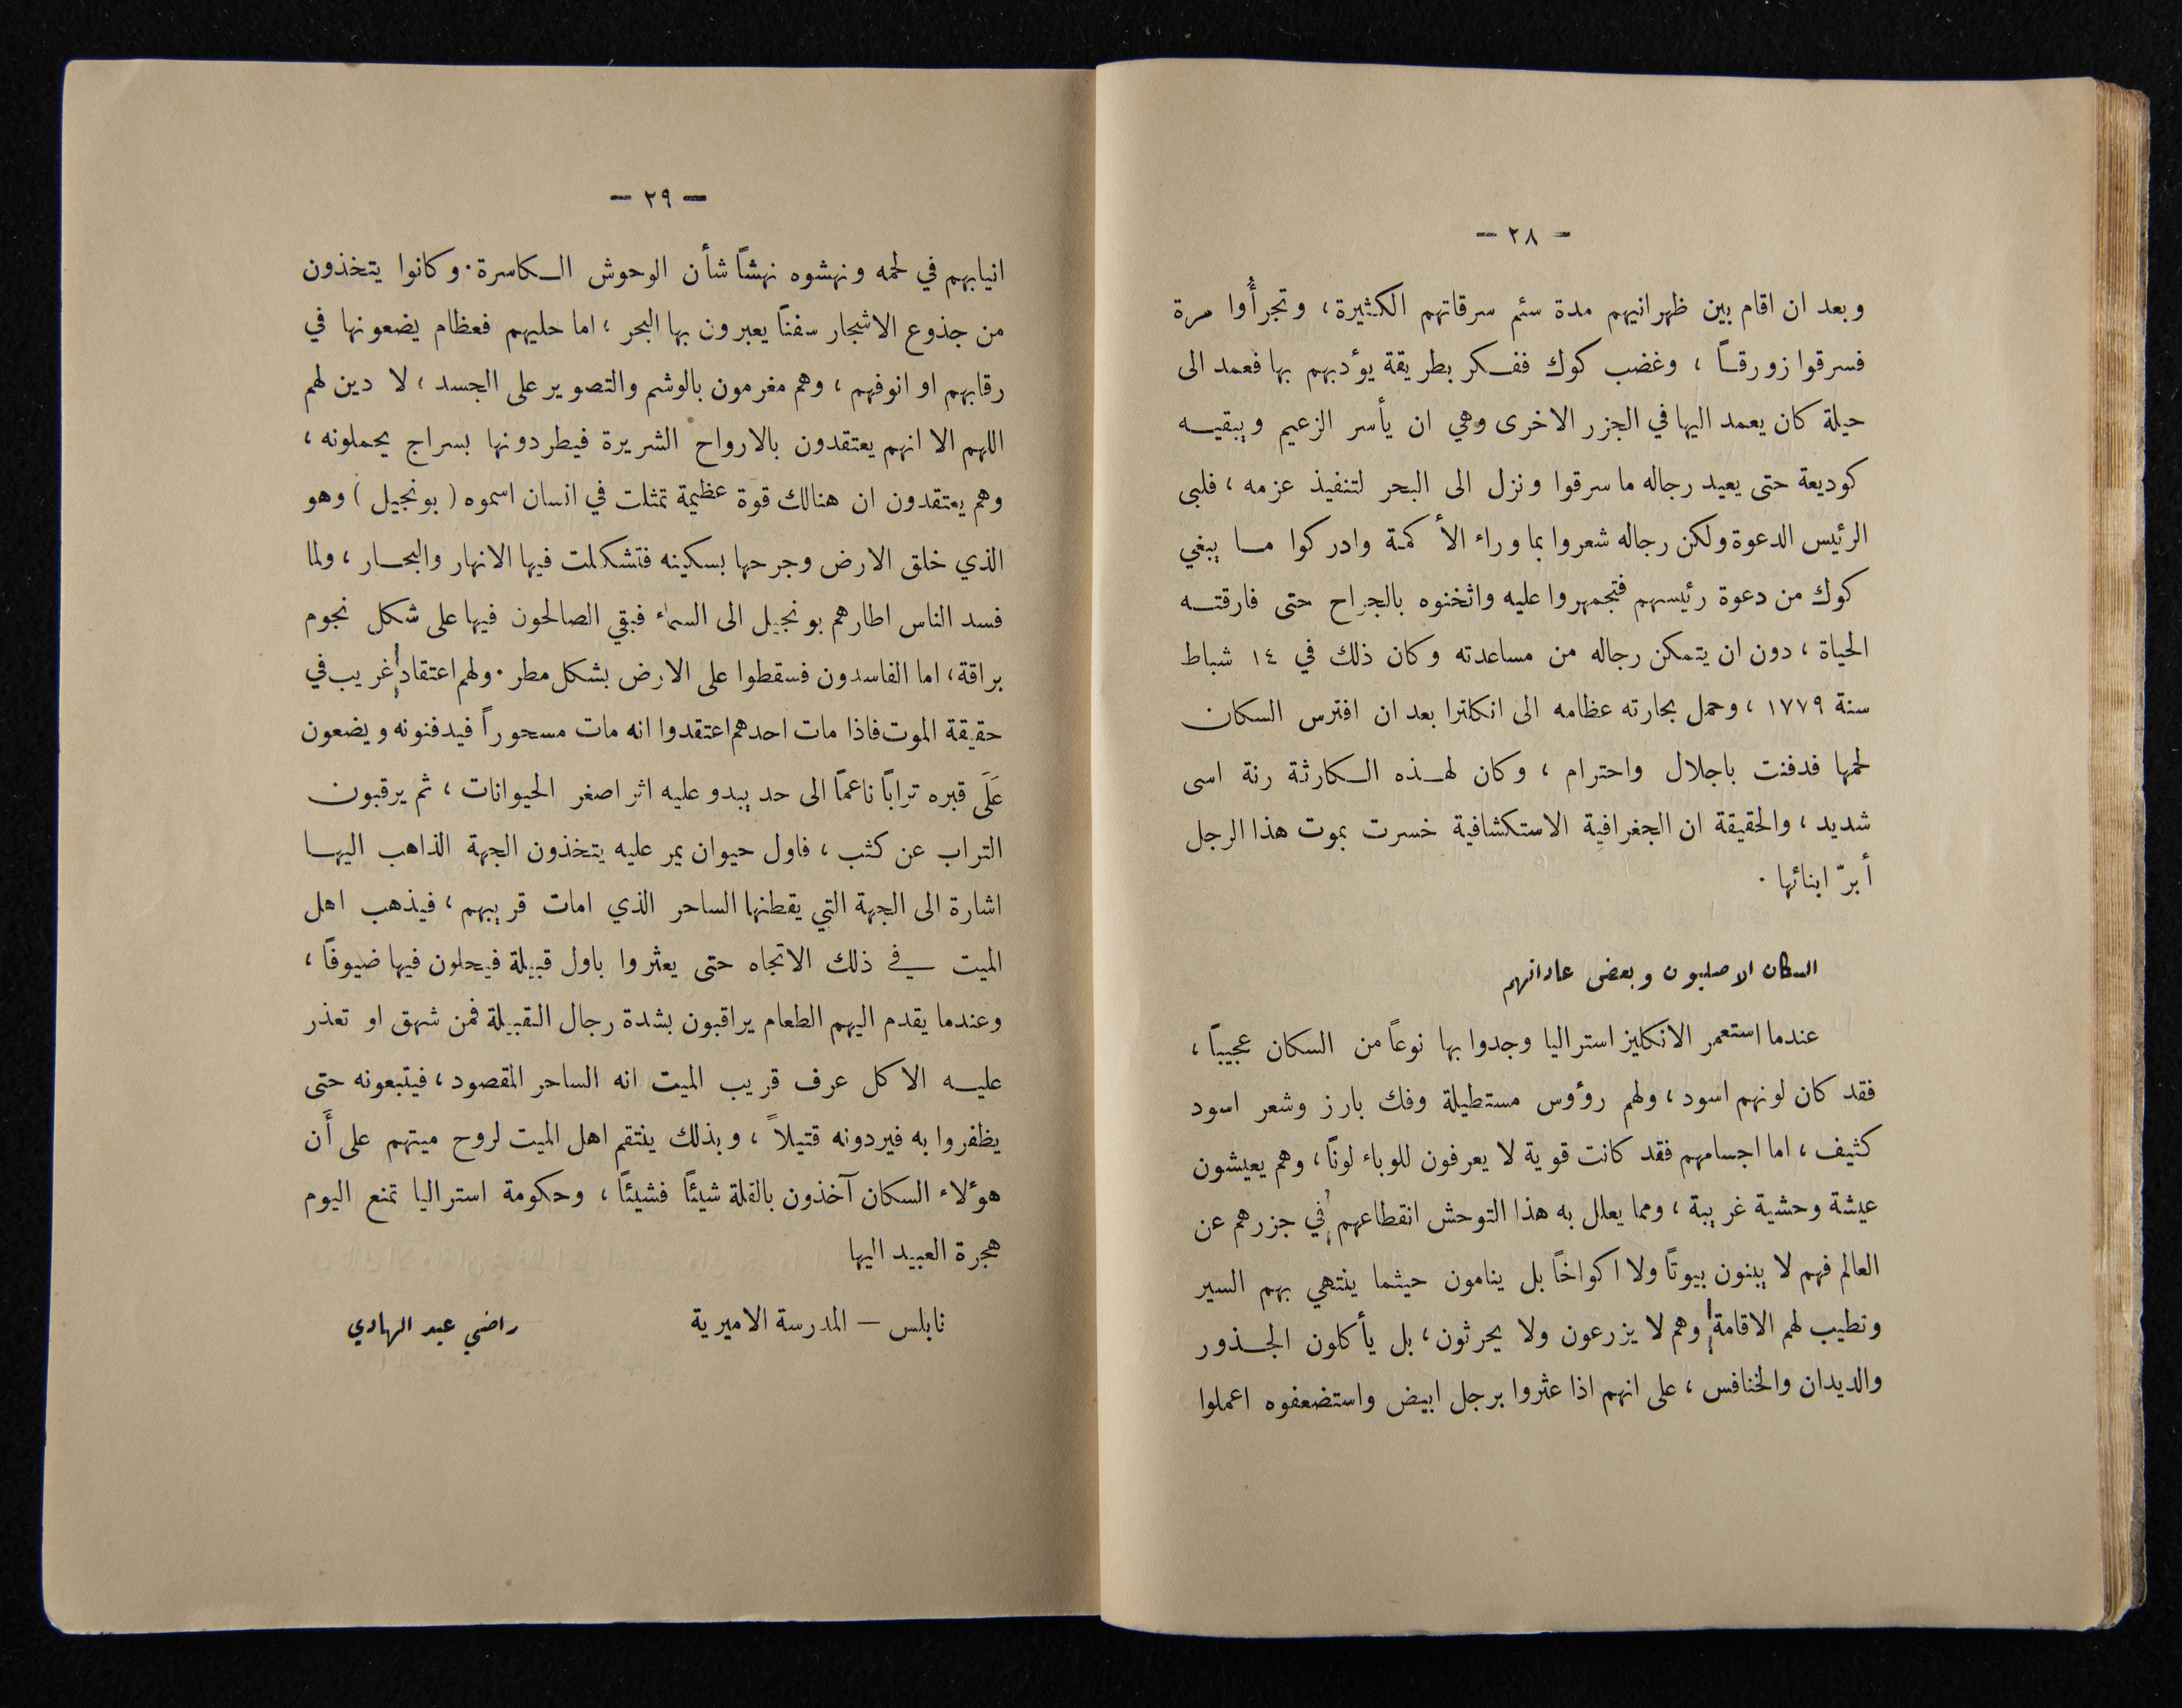 — ٢٨ —
وبعد ان اقام بين ظهرانيهم مدة سئم سرقاتهم الكثيرة، وتجرأُوا مرة
فسرقوا زورقاً ، وغضب كوك ففكر بطريقة يؤدبهم بها فعمد الى
حيلة كان يعمد اليها في الجزر الاخرى وهي ان يأسر الزعيم ويبقيه
كوديعة حتى يعيد رجاله ما سرقوا ونزل الى البحر لتنفيذ عزمه ، فلبى
الرئيس الدعوة ولكن رجاله شعروا بما وراء الأكمة وادركوا ما يبغي
كوك من دعوة رئيسهم فتجمهروا عليه واثخنوه بالجراح حتى فارقته
الحياة ، دون ان يتمكن رجاله من مساعدته وكان ذلك في ١٤ شباط
سنة ١٧٧٩ ، وحمل بحارته عظامه الى انكلترا بعد ان افترس السكان
لحمها فدفنت باجلال واحترام ، وكان لهذه الكارثة رنة اسى
شديد ، والحقيقة ان الجغرافية الاستكشافية خسرت بموت هذا الرجل
أبرّ ابنائها .
السكان الاصليون وبعض عاداتهم
عندما استعمر الانكليز استراليا وجدوا بها نوعاً من السكان عجيباً ،
فقد كان لونهم اسود ، ولهم رؤوس مستطيلة وفك بارز وشعر اسود
كثيف ، اما اجسامهم فقد كانت قوية لا يعرفون للوباء لوناً ، وهم يعيشون
عيشة وحشية غريبة ، ومما يعلل به هذا التوحش انقطاعهم في جزرهم عن
العالم فهم لا يبنون بيوتاً ولا اكواخاً بل ينامون حيثما ينتهي بهم السير
وتطيب لهم الاقامة وهم لا يزرعون ولا يحرثون ، بل يأكلون الجذور
والديدان والخنافس ، على انهم اذا عثروا برجل ابيض واستضعفوه اعملوا
— ٢٩ —
انيابهم في لحمه ونهشوه نهشاً شأن الوحوش الكاسرة . وكانوا يتخذون
من جذوع الاشجار سفناً يعبرون بها البحر ، اما حليهم فعظام يضعونها في
رقابهم او انوفهم ، وهم مغرمون بالوشم والتصوير على الجسد ، لا دين لهم
اللهم الا انهم يعتقدون بالارواح الشريرة فيطردونها بسراج يحملونه ،
وهم يعتقدون ان هنالك قوة عظيمة تمثلت في انسان اسموه ( بونجيل ) وهو
الذي خلق الارض وجرحها بسكينه فتشكلت فيها الانهار والبحار ، ولما
فسد الناس اطارهم بونجيل الى السماء فبقي الصالحون فيها على شكل نجوم
براقة ، اما الفاسدون فسقطوا على الارض بشكل مطر . ولهم اعتقاد غريب في
حقيقة الموت فاذا مات احدهم اعتقدوا انه مات مسحوراً فيدفنونه ويضعون
عَلَى قبره تراباً ناعماً الى حد يبدو عليه اثر اصغر الحيوانات ، ثم يرقبون
التراب عن كثب ، فاول حيوان يمر عليه يتخذون الجهة الذاهب اليها
اشارة الى الجهة التي يقطنها الساحر الذي امات قريبهم ، فيذهب اهل
الميت في ذلك الاتجاه حتى يعثروا باول قبيلة فيحلون فيها ضيوفاً ،
وعندما يقدم اليهم الطعام يراقبون بشدة رجال القبيلة فمن شهق او تعذر
عليه الاكل عرف قريب الميت انه الساحر المقصود ، فيتبعونه حتى
يظفروا به فيردونه قتيلاً ، وبذلك ينتقم اهل الميت لروح ميتهم على أَن
هؤلاء السكان آخذون بالقلة شيئاً فشيئاً ، وحكومة استراليا تمنع اليوم
هجرة العبيد اليها
نابلس — المدرسة الاميرية راضي عبد الهادي